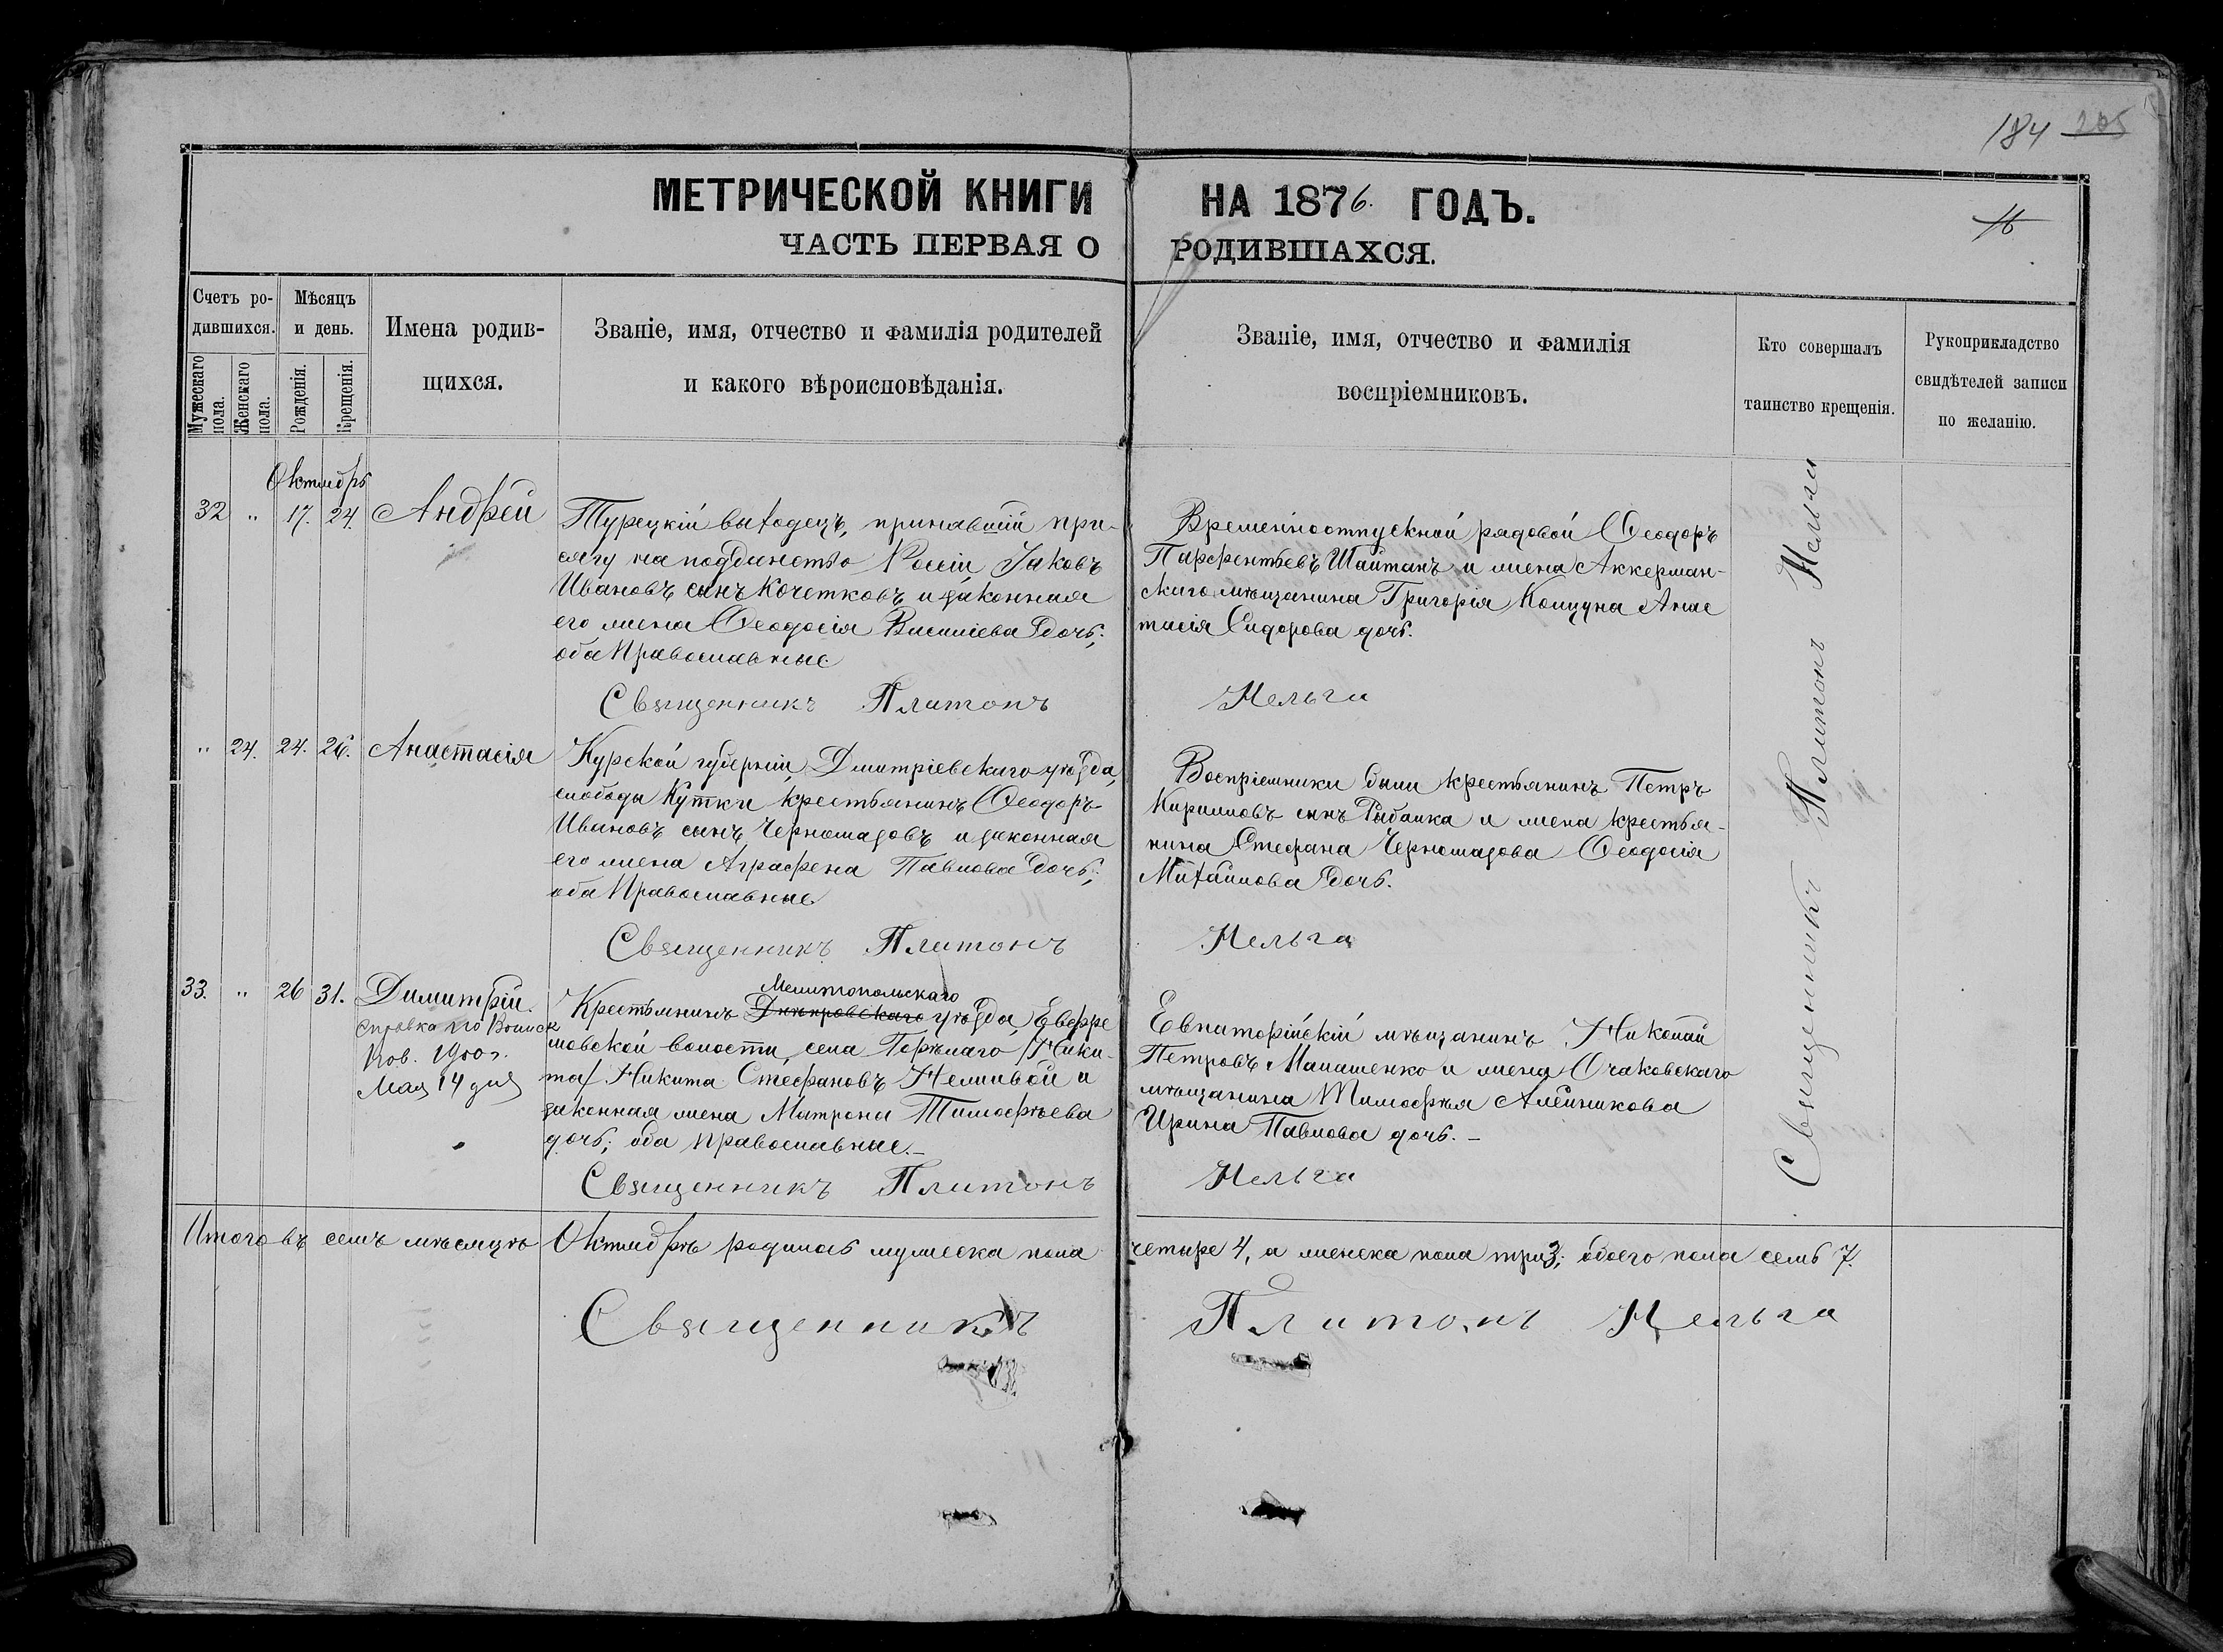 184 205
МЕТРИЧЕСКОЙ КНИГИ НА 1876. ГОДЪ.
16
ЧАСТЬ ПЕРВАЯ О РОДИВШАХСЯ.
Счетъ ро-
дившихся.
Мужескаго пола.
Женскаго пола.
Мѣсяцъ
и день.
Рожденія.
Крещенія.
Имена родив-
щихся.
Званіе, имя, отчество и фамилія родителей
и какого вѣроисповѣданія.
Званіе, имя, отчество и фамилія
воспріемниковъ.
Кто совершалъ
таинство крещенія.
Рукоприкладство
свидѣтелей записи
по желанію.
Октябрь
32 " 17. 24. Андрей
Турецкій выходецъ, принявшій при-
сягу на подданство Россіи, Іаковъ
Ивановъ сынъ Кочетковъ и законная
его жена Ѳеодосія Василіева дочь;
оба Православные
Священникъ Платонъ
Временноотпускной рядовой Ѳеодоръ
Парфентьевъ Шайтанъ и жена Аккерман-
скаго мѣщанина Григорія Коцуна Анас
тасія Сидорова дочь.
Нельга
" 24. 24. 26. Анастасія
Курской губерніи, Дмитріевскаго уѣзда,
слободы Кутки крестьянинъ Ѳеодоръ
Ивановъ сынъ Черномазовъ и законная
его жена Аграфена Павлова дочь;
оба Православные
Священникъ Платонъ
Воспріемники были крестьянинъ Петръ
Кирилловъ сынъ Рыбалка и жена крестья-
нина Стефана Черномазова Ѳеодосія
Михайлова дочь.
Нельга
33. " 26 31. Димитрій.
Справка по Воинск
Пов. 1900 г.
Мая 14 дня
Мелитопольскаго
Крестьянинъ Днѣпровскаго уѣзда, Ефре
мовской волости, села Горѣлаго /Ники-
та/ Никита Стефановъ Неживой и
законная жена Матрона Тимофѣева
дочь; оба православные.–
Священникъ Платонъ
Евпаторійскій мѣщанинъ Николай
Петровъ Малашенко и жена Очаковскаго
мѣщанина Тимофѣя Алейникова
Ирина Павлова дочь.–
Нельга
Священникъ Платонъ Нельга
Итого въ семъ мѣсяцѣ Октябрѣ родилось мужеска пола четыре 4, а женска пола три 3; обоего пола семь 7.
Священникъ Платонъ Нельга